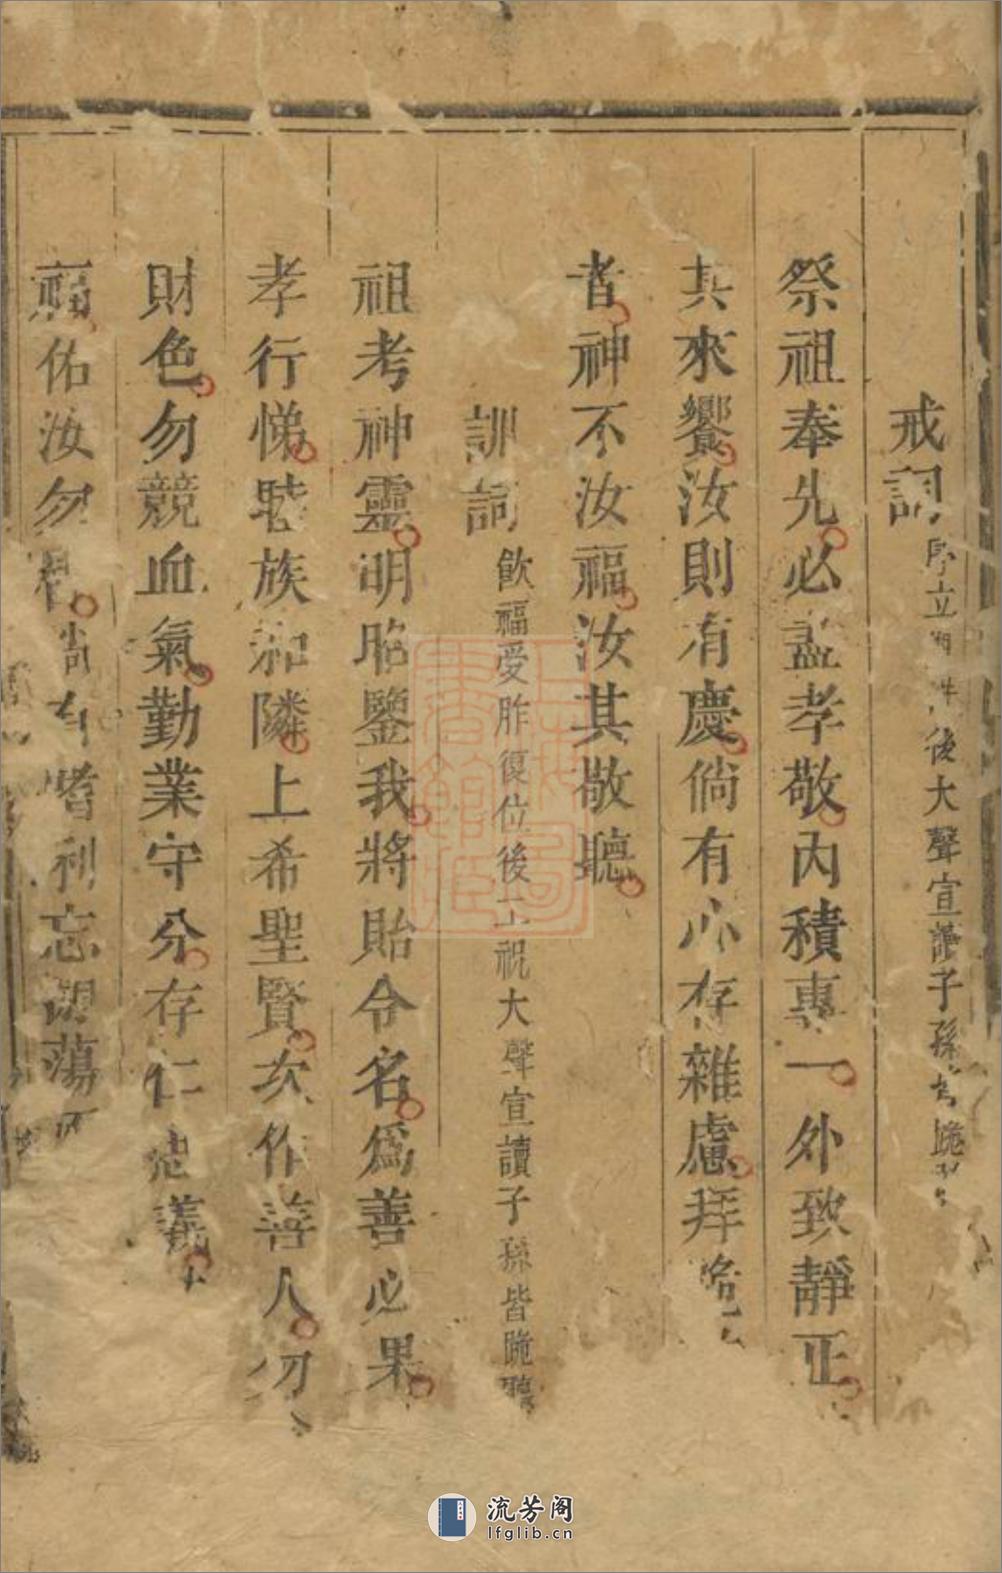 戒詞 序立 後大聲宣讀子孫皆跪
祭祖奉先必盡孝敬内積專一外致靜正
其來饗汝則有慶倘有心存雜慮拜跪
者神不汝福汝其敬聽
訓詞 飲福受胙復位後工祝大聲宣讀子孫皆跪聽
祖考神靈明昭鑒我將貽令名爲善必果
孝行悌睦族和隣上希聖賢次作善人勿
財色勿競血氣勤業守分存仁 義
福佑汝勿 嗜利忘 蕩
流芳阁
lfglib.cn